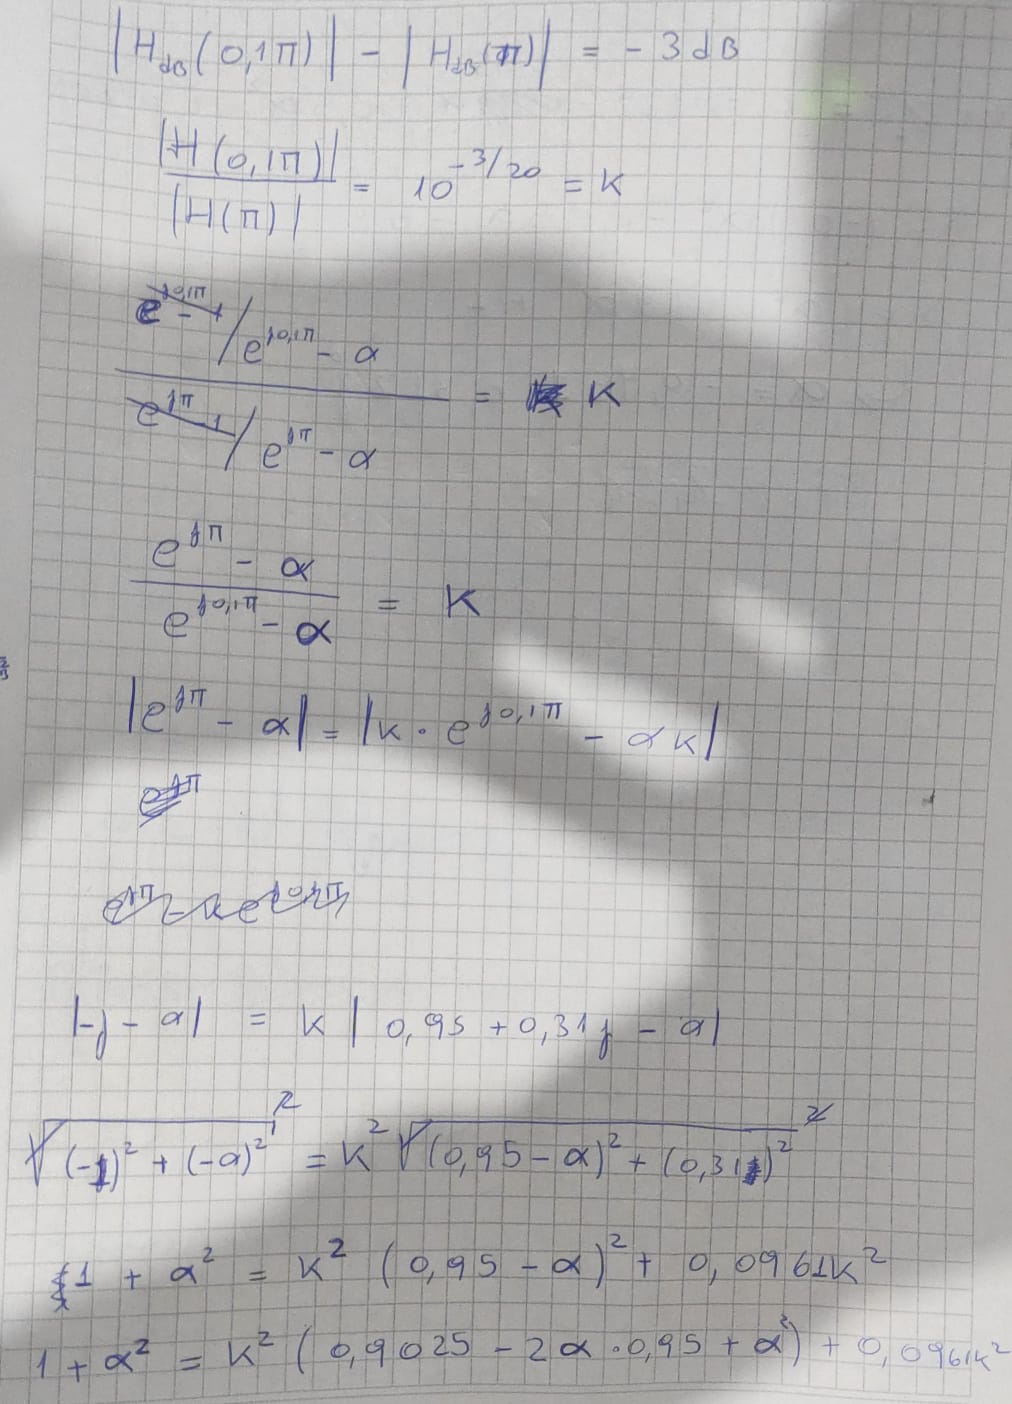 |H_dB(0,1π)| - |H_dB(π)| = -3 dB
|H(0,1π)| / |H(π)| = 10^(-3/20) = K
e^(j0,1π) - 1 / e^(j0,1π) - α
e^(jπ) - 1 / e^(jπ) - α = K
e^(jπ) - α / e^(j0,1π) - α = K
|e^(jπ) - α| = |K · e^(j0,1π) - αK|
e^(jπ)
|-j - α| = K | 0,95 + 0,31j - α|
√((-1)² + (-α)²)² = K² √((0,95 - α)² + (0,31)²)²
1 + α² = K² (0,95 - α)² + 0,0961K²
1 + α² = K² (0,9025 - 2α · 0,95 + α²) + 0,0961K²